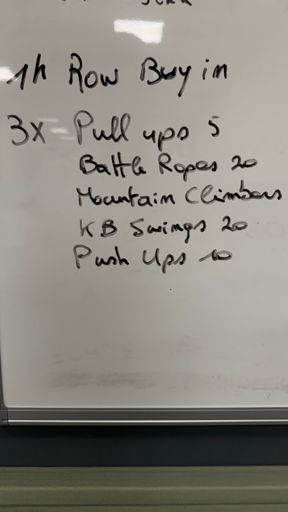 1h Row Buy in
3x Pull ups 5
Battle Ropes 20
Mountain Climbers
KB Swings 20
Push Ups 10